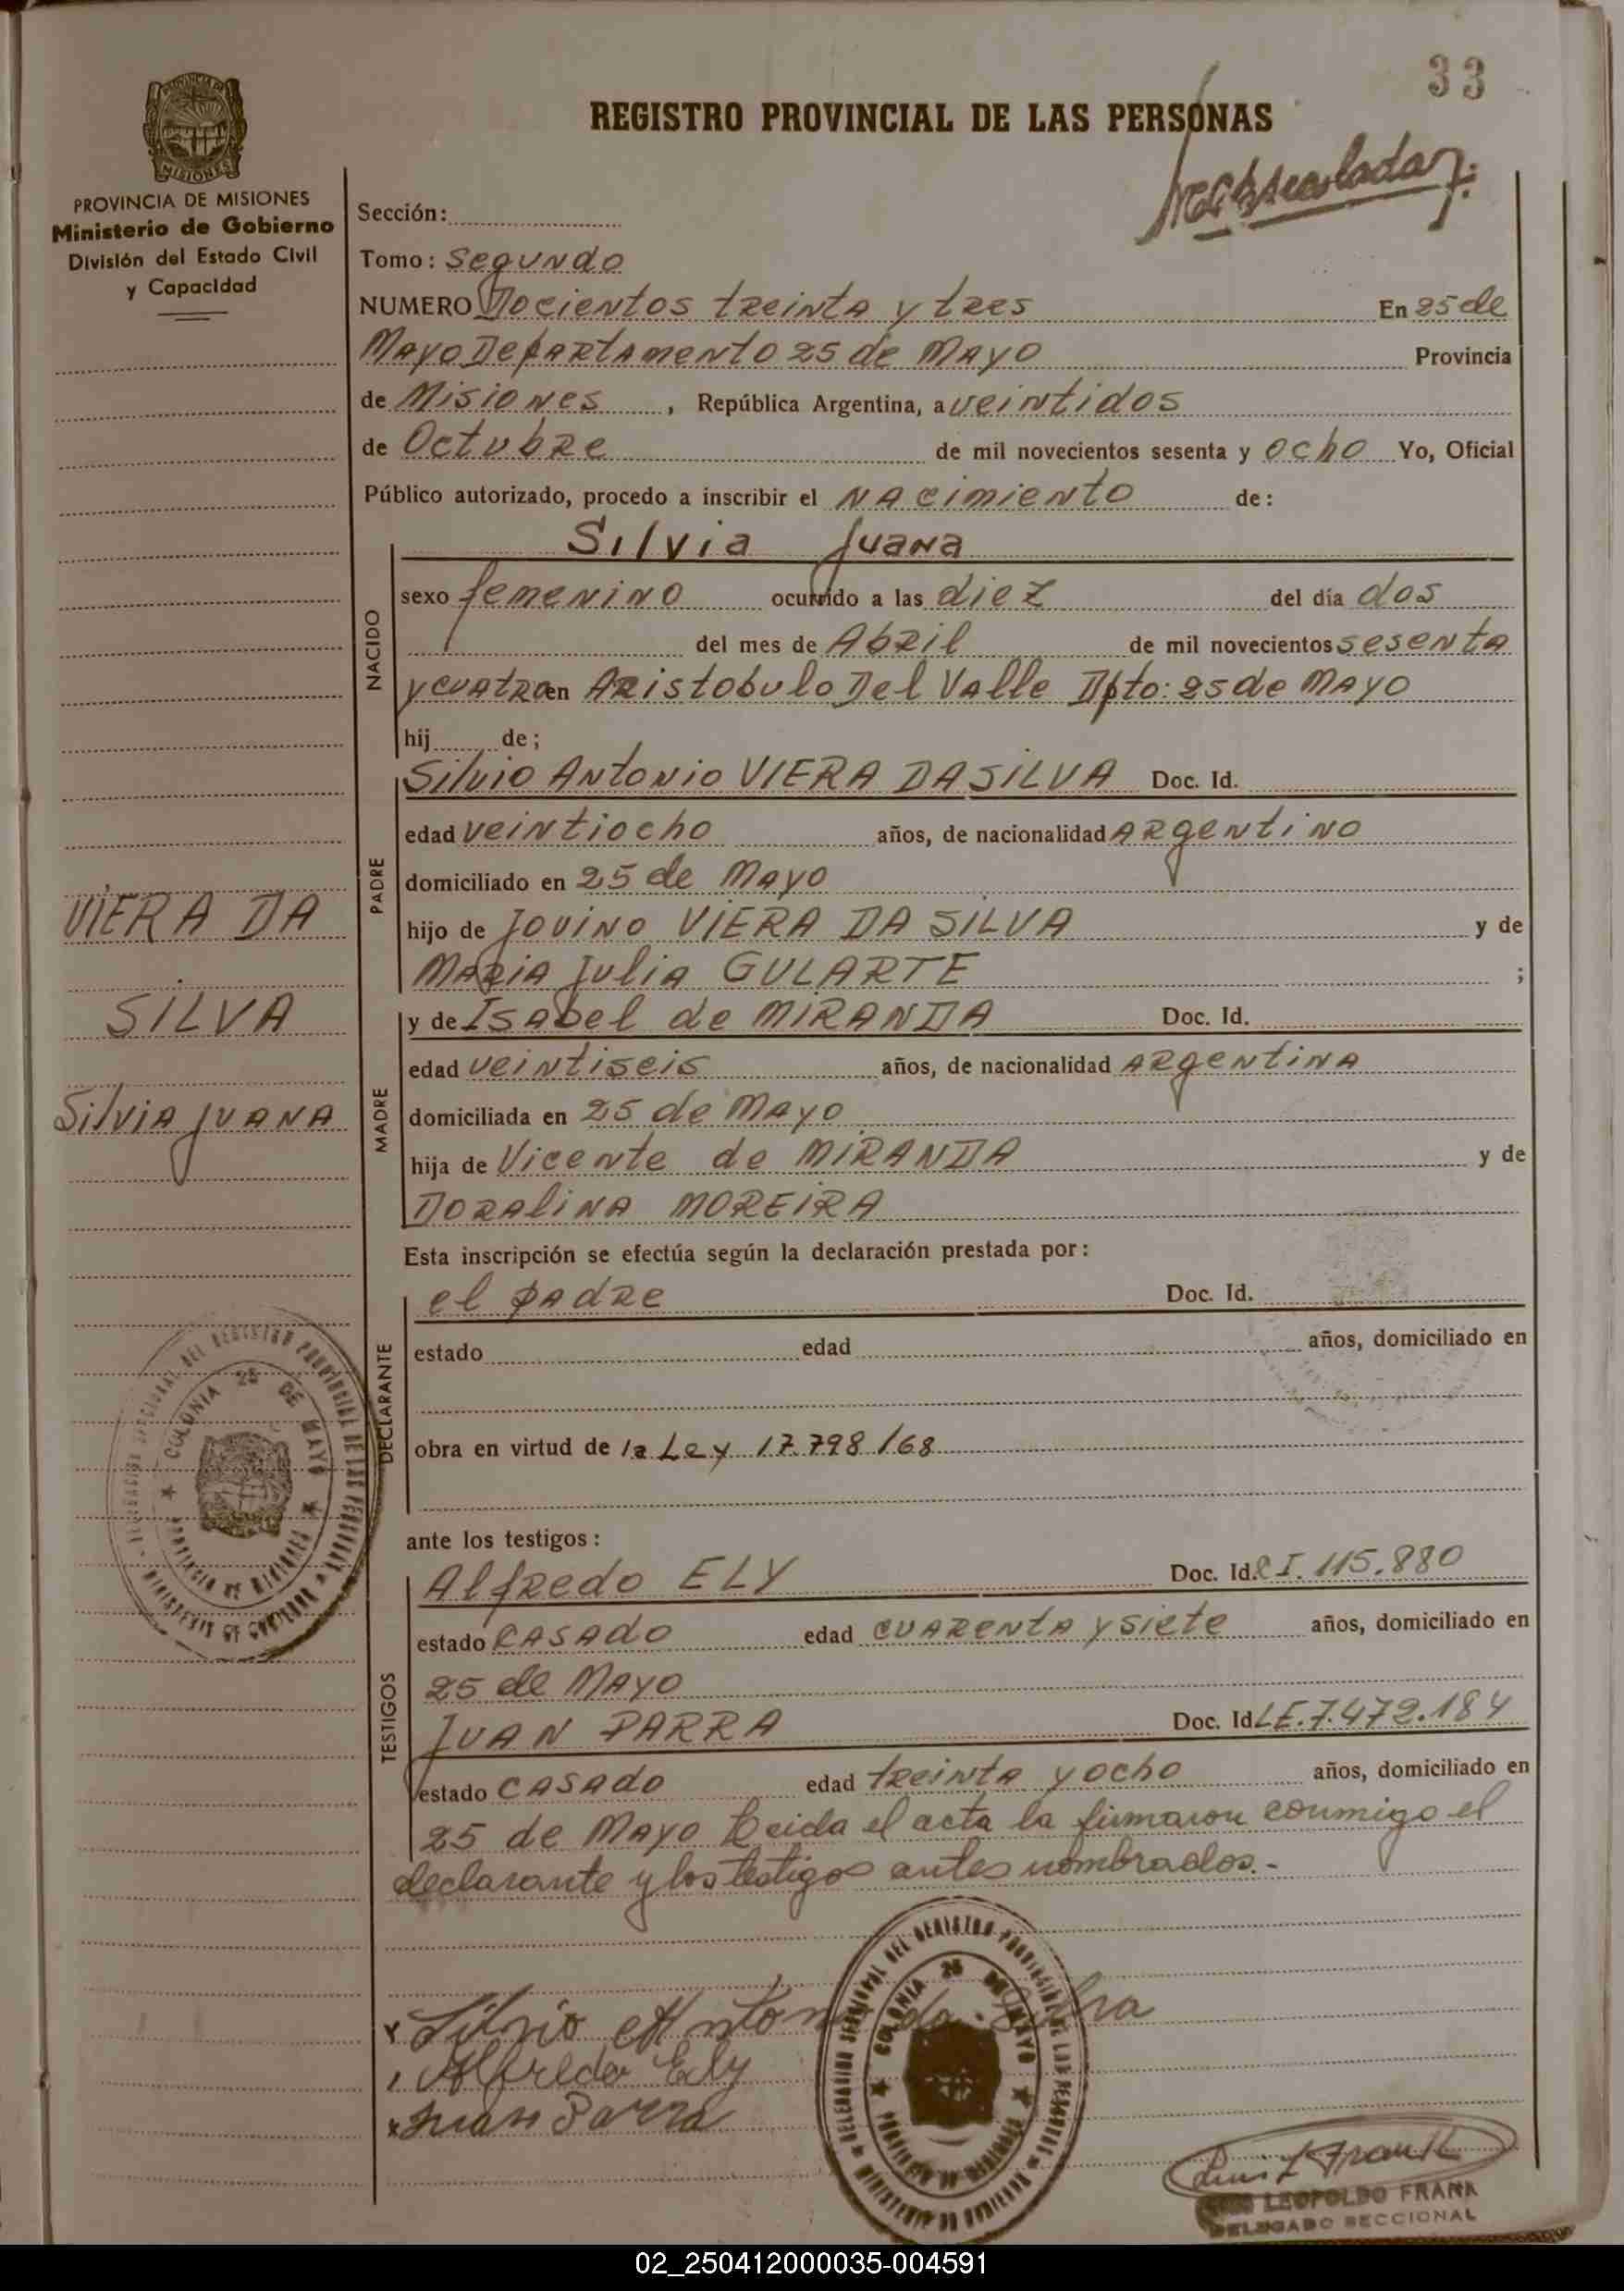 33
REGISTRO PROVINCIAL DE LAS PERSONAS
PROVINCIA DE MISIONES
Ministerio de Gobierno
División del Estado Civil
y Capacidad
Sección:
Tomo: Segundo
NUMERO Docientos treinta y tres En 25 de
Mayo Departamento 25 de Mayo Provincia
de Misiones, República Argentina, a veintidos
de Octubre de mil novecientos sesenta y ocho Yo, Oficial
Público autorizado, procedo a inscribir el nacimiento de:
NACIDO
Silvia Juana
sexo femenino ocurrido a las diez del día dos
del mes de Abril de mil novecientos sesenta
y cuatro en Aristobulo Del Valle Dpto: 25 de Mayo
hij de;
PADRE
Silvio Antonio VIERA DA SILVA Doc. Id.
edad veintiocho años, de nacionalidad Argentino
domiciliado en 25 de Mayo
hijo de Jovino VIERA DA SILVA y de
Maria Julia GULARTE ;
VIERA DA
SILVA
Silvia Juana
MADRE
y de Isabel de MIRANDA Doc. Id.
edad veintiseis años, de nacionalidad Argentina
domiciliada en 25 de Mayo
hija de Vicente de MIRANDA y de
Doralina MOREIRA
Esta inscripción se efectúa según la declaración prestada por:
DECLARANTE
el padre Doc. Id.
estado edad años, domiciliado en
obra en virtud de la Ley 17.798/68
ante los testigos:
TESTIGOS
Alfredo ELY Doc. Id. I. 115.880
estado casado edad cuarenta y siete años, domiciliado en
25 de Mayo
Juan PARRA Doc. Id. L.E. 7.472.184
estado casado edad treinta y ocho años, domiciliado en
25 de Mayo Leida el acta la firmaron conmigo el
declarante y los testigos antes nombrados.-
DELEGACION SECCIONAL DEL REGISTRO PROVINCIAL DE LAS PERSONAS
COLONIA 25 DE MAYO
PROVINCIA DE MISIONES
MINISTERIO DE GOBIERNO
Silvio Antonio da Silva
Alfredo Ely
Juan Parra
DELEGACION SECCIONAL DEL REGISTRO PROVINCIAL DE LAS PERSONAS
COLONIA 25 DE MAYO
PROVINCIA DE MISIONES
MINISTERIO DE GOBIERNO
Luis L Frank
LEOPOLDO FRANK
DELEGADO SECCIONAL
02_250412000035-004591